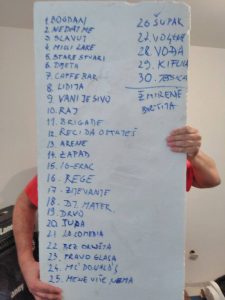 1. BOGDANI
2. NEDAJ ME
3. SLAVUJ
4. MIGI LAKE
5. STARE STVARI
6. DJETA
7. CAFFE BAR
8. LIDIJA
9. VANI JE SIVO
10. RAJ
11. BRIGADE
12. RECI DA O MATEŠ
13. ARENE
14. ZAPAD
15.
16. REGE
17. ZIJEVANJE
18. DJ. MATER.
19. DRVO
20. TUPA
21. LA COMEDIA
22. BEZ DRUŠTA
23. PRAVO GLASA
24. MC DONALD'S
25. MENE VIŠE NEMA
26. ŠUPAK
27.
28. VOĐA
29. KIFLA
30.
ŽMIRENE